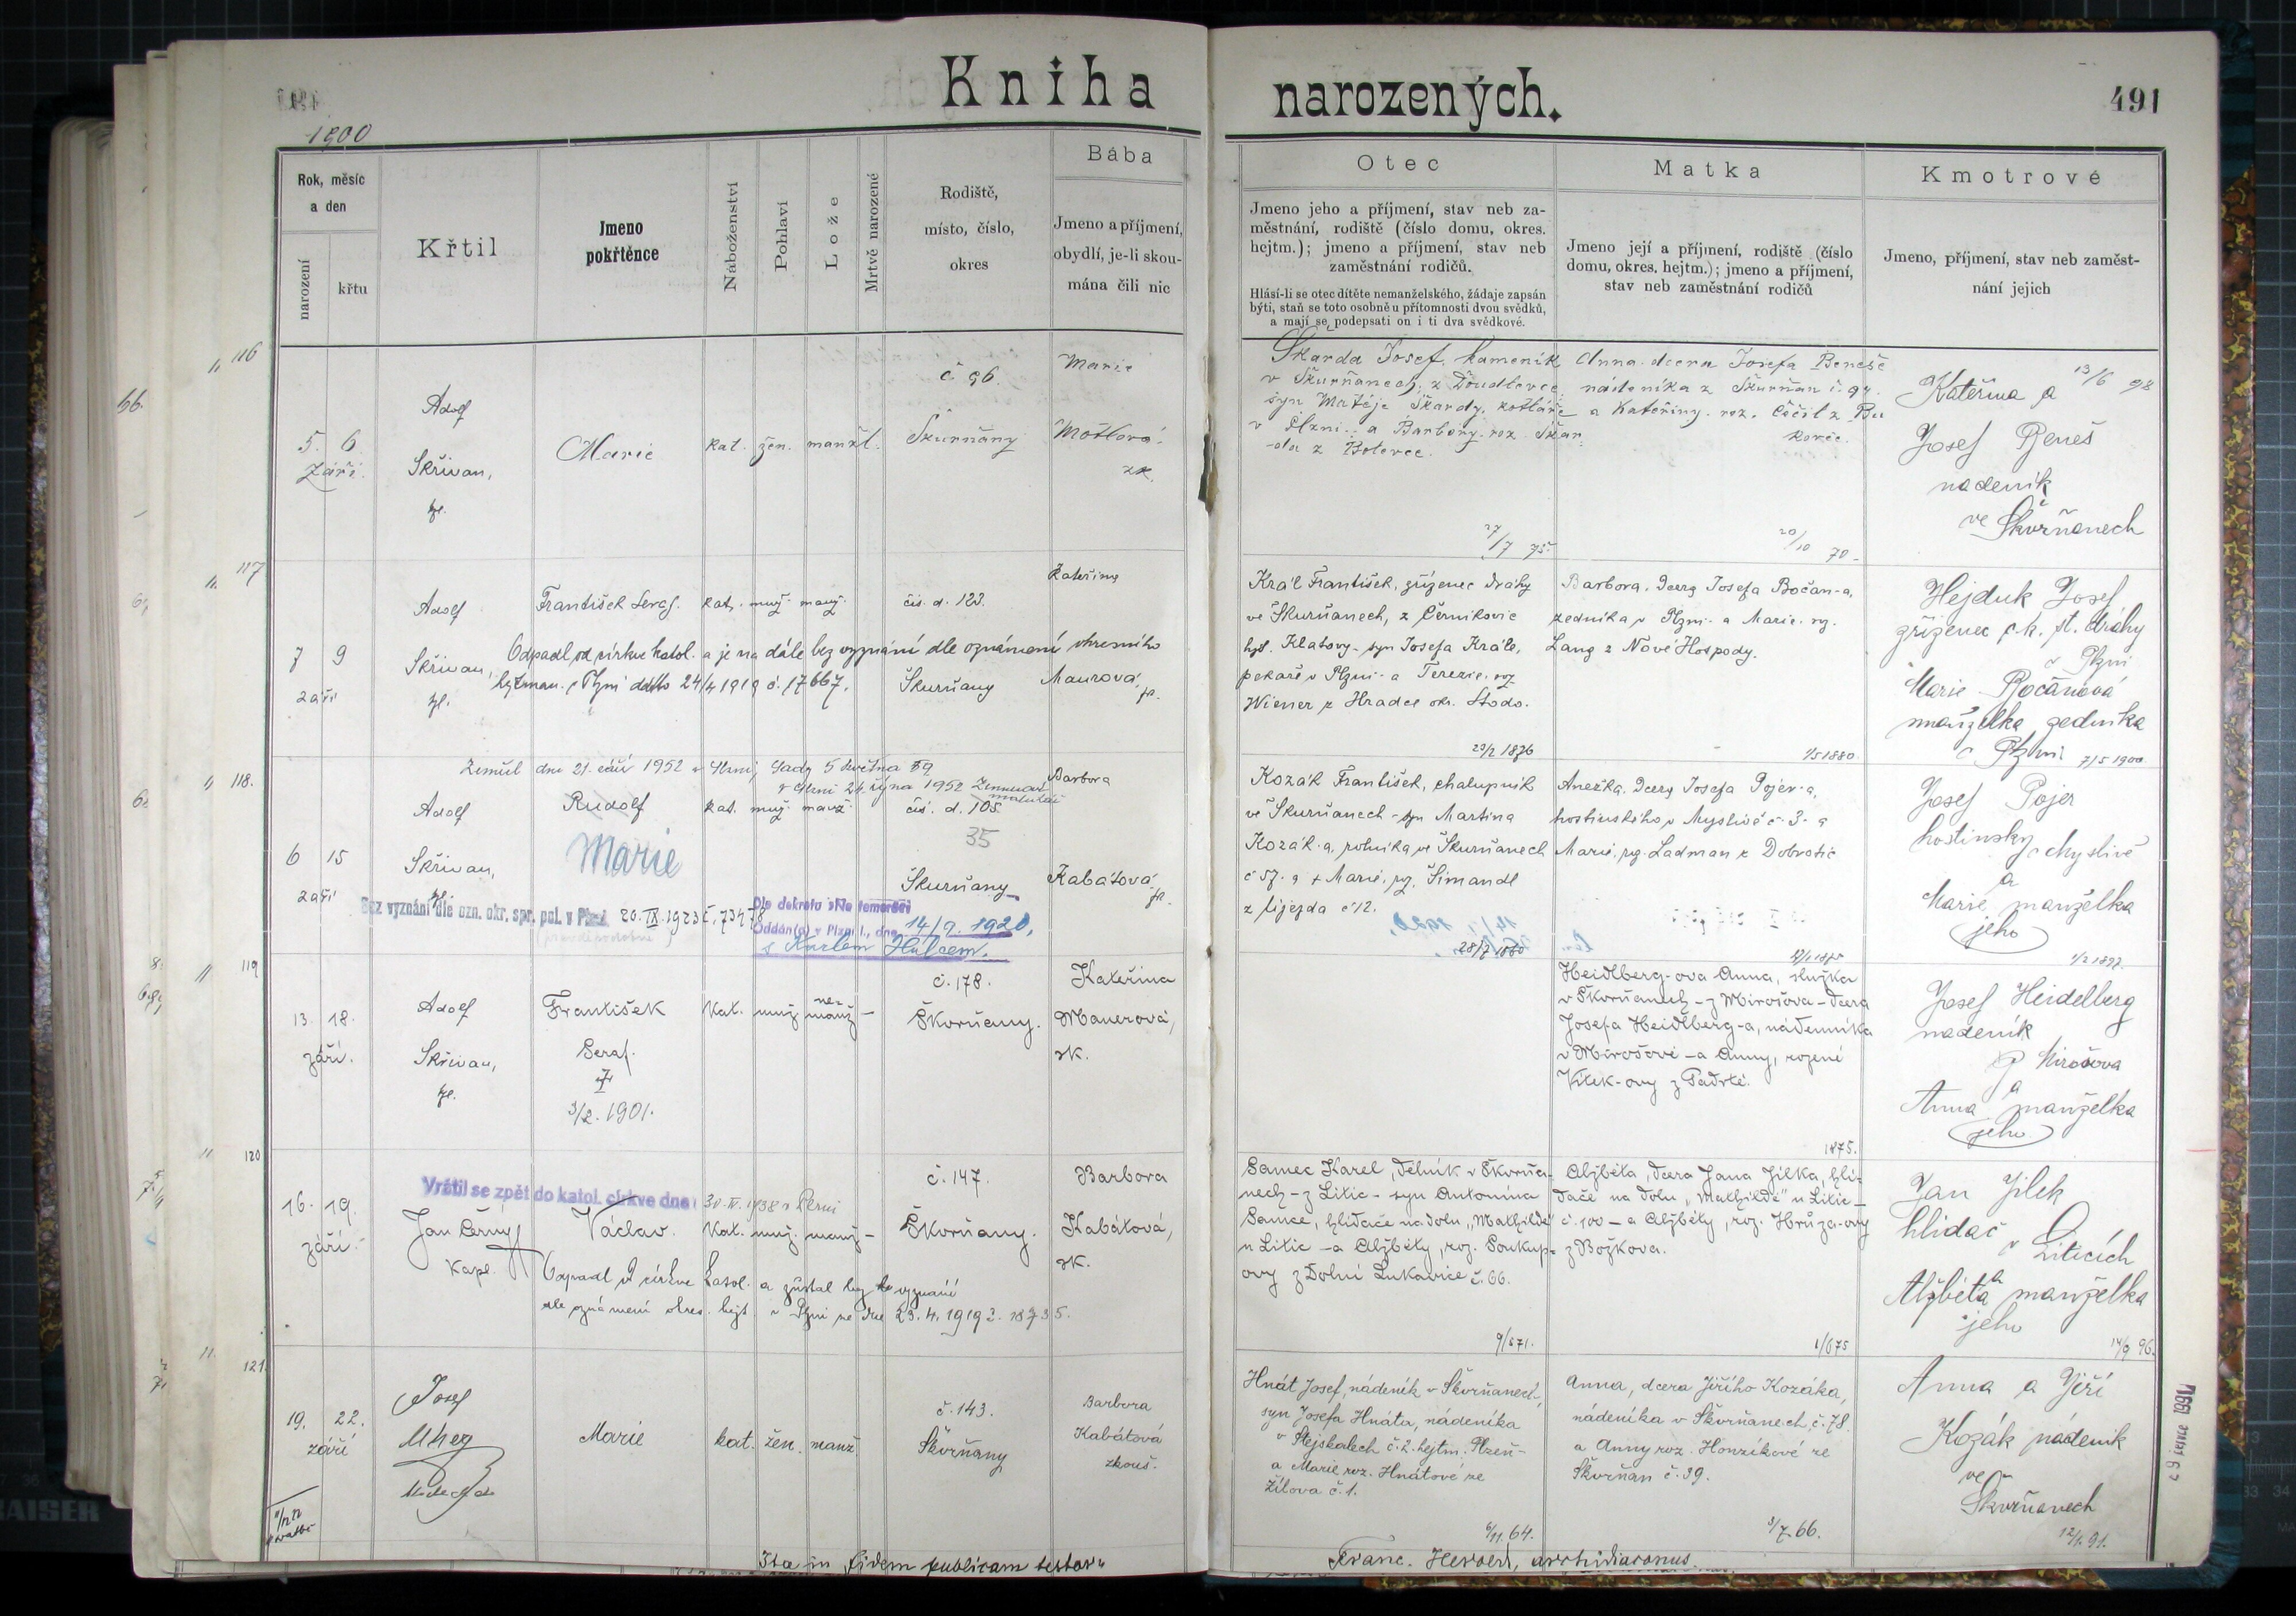 Kniha narozených.
491
1900
Rok, měsíc
a den
narození
křtu
Křtil
Jmeno
pokřtěnce
Náboženství
Pohlaví
Lože
Mrtvě narozené
Rodiště,
místo, číslo,
okres
Bába
Jmeno a příjmení,
obydlí, je-li skou-
mána čili nic
Otec
Jmeno jeho a příjmení, stav neb za-
městnání, rodiště (číslo domu, okres.
hejtm.); jmeno a příjmení, stav neb
zaměstnání rodičů.
Hlásí-li se otec dítěte nemanželského, žádaje zapsán
býti, staň se toto osobně u přítomnosti dvou svědků,
a mají se podepsati on i ti dva svědkové.
Matka
Jmeno její a příjmení, rodiště (číslo
domu, okres. hejtm.); jmeno a příjmení,
stav neb zaměstnání rodičů
Kmotrové
Jmeno, příjmení, stav neb zaměst-
nání jejich
116
5. 6.
září.
Adolf
Skřivan,
Marie
kat. žen. manžl.
č 96.
Škurňany
Marie
Skarda Josef, kameník
v Škurňanech, z Doudlevec
syn Matěje Škardy, košťáře
v Plzni. a Barbory. roz. Škar
-da z Bolevec.
27/7
Anna. dcera Josefa Beneše
nádeníka z Škurňan
a Kateřiny. roz.
20/10 70
13/6 98
Kateřina a
Josef Beneš
nadeník
ve Škvrňanech
117
7 9
září
Adolf
Skřivan,
František Seraf.
kat. muž. manž.
čís. d. 123.
Škurňany
Kateřina
Maurová
Odpadl od církve katol. a je na dále bez vyznání dle oznámení okresního
hejtman. v Plzni datto 24/4 1919 č. 17667.
Král František, zřízenec dráhy
ve Škurňanech, z Černikovic
hejt. Klatovy - syn Josefa Krále,
pekaře v Plzni - a Terezie. roz
Wiener z Hradce okr. Stodo.
29/2 1876
Barbora. Dcera Josefa Bočan-a,
zedníka v Plzni. a Marie. roz.
Lang z Nové Hospody.
1/5 1880
Hejduk Josef
zřízenec c. k. st. dráhy
v Plzni
Marie Bočanová
manželka zedníka
v Plzni 7/5 1900
118.
6 15
září
Zemřel dne 21. září 1952 v Plzni, Sady 5 května 59
Adolf
Skřivan,
Rudolf
Marie
kat. muž. manž.
čís. d. 105.
35
Škurňany
Barbora
Kabátová
Bez vyznání dle ozn. okr. spr. pol. v Plzni 20.IX.1923 č. 73478
Oddán(a) v Plzni I., dne 14/9. 1920,
s Karlem Hulcem.
Kozák František, chalupník
ve Škurňanech - syn Martina
Kozák-a, rolníka, ve Škurňanech
č 57. a + Marie, roz. Šimandl
z Újezda č 12.
Anežka, Dcera Josefa Pojer-a,
hostinského v Myslivě č. 3 - a
Marie, roz. Ladman z Dobrotic
Josef Pojer
hostinský v Myslivě
a
Marie manželka
jeho
1/2 1897.
119
13. 18.
září.
Adolf
Skřivan,
František
Seraf.
†
3/2. 1901.
Kat. muž nemanž -
č. 178.
Škorňany.
Kateřina
Mauerová,
zk.
Heidlberg-ova Anna, služka
v Škorňanech - z Mirošova - dcera
Josefa Heidlberg-a, nádenníka
v Mirošově - a Anny, rozené
Vlček-ovy z Padrtě.
1875.
Josef Heidelberg
nadeník
z Mirošova
a
Anna manželka
jeho
120
16. 19.
září.
Vrátil se zpět do katol. církve dne
Jan Černý
Kapl.
Václav.
Kat. muž. manž -
č. 147.
Škorňany.
Barbora
Kabátová,
zk.
Odpadl od církve katol. a zůstal bez vyznání
dle oznámení okres. hejt. v Plzni ze dne 23. 4. 1919 č. 18735.
Samec Karel, dělník v Škorňa-
nech - z Litic - syn Antonína
Samce, hlídače na dolu "Mathilde"
u Litic - a Alžběty, roz. Soukup-
ovy z Dolní Lukavice č. 66.
Alžběta, dcera Jana Jílka, hlí-
dače na dolu "Mathilde" u Litic -
č. 100 - a Alžběty, roz. Hrůza-ovy
z Božkova.
Jan Jílek
hlídač
v Liticích
a
Alžběta manželka
jeho
14/9 96.
121.
19. 22.
září
Josef
Marie
kat. žen. manž.
č. 143.
Škvrňany
Barbora
Kabátová
zkouš.
Hnát Josef, nádeník v Škvrňanech,
syn Josefa Hnáta, nádeníka
v Stejskalech č. 2. hejtm. Plzeň -
a Marie roz. Hnátové ze
Žilova č. 1.
6/11 64.
Anna, dcera Jiřího Kozáka,
nádeníka v Škvrňanech, č. 78.
a Anny roz. Honzíkové ze
Škvrňan č. 39.
3/7. 66.
Anna a Jiří
Kozák nádeník
ve
Škvrňanech
12/1. 91.
Ita in fidem publicam testor
Franc. Herold, archidiaconus.